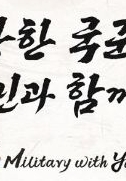 한 국
민과 함
Military with